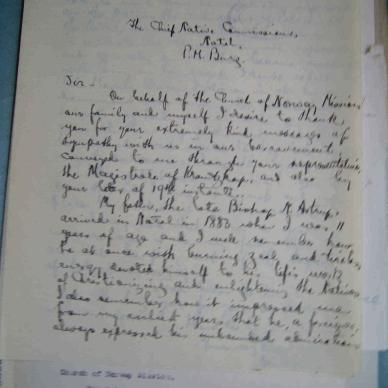 The Chief Native Commissioner,
Natal.
P.M. Burg.
Sir -
On behalf of the Church of Norway Mission
our family and myself I desire to thank
you for your extremely kind message of
sympathy with us in our bereavement,
conveyed to me through your representative,
the Magistrate of and also by
your letter of 19th instant.
My father, the late Bishop N. Astrup,
arrived in Natal in 1883 when I was 11
years of age and I well remember how
he at once with burning zeal and tireless
energy devoted himself to his life's work
of Christianizing and enlightening the Natives.
I also remember how it impressed me
from my earliest years that he, a foreigner,
always expressed his unbounded admiration
Church of Norway Mission.